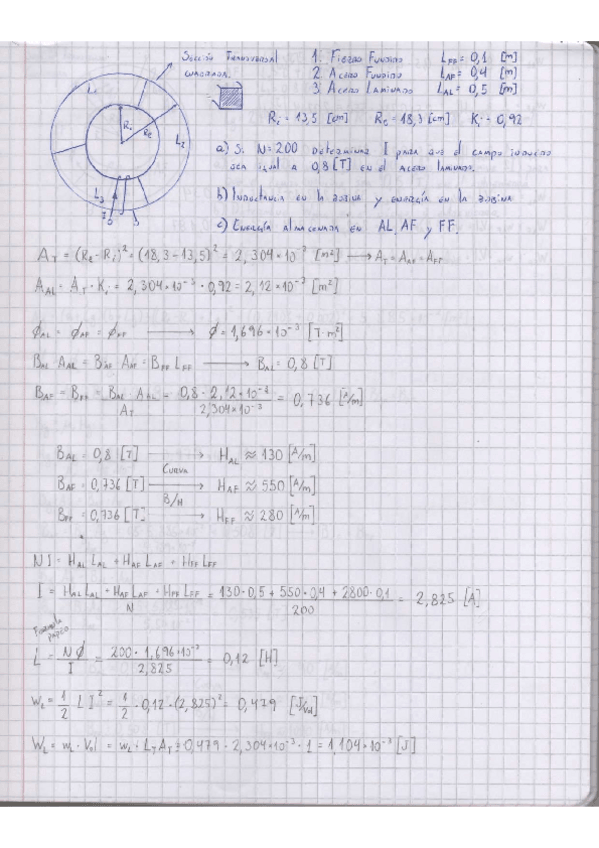 Sección Transversal cuadrada.
1. Fierro Fundido L_FF = 0,1 [m]
2. Acero Fundido L_AF = 0,4 [m]
3. Acero Laminado L_AL = 0,5 [m]
R_i = 13,5 [cm] R_e = 18,3 [cm] K_i = 0,92
L₁
R_i
R_e
L₂
L₃
a) Si N=200 determinar I para que el campo inducido
sea igual a 0,8 [T] en el acero laminado.
b) Inductancia en la bobina y energía en la bobina
c) Energía almacenada en AL, AF y FF.
A_T = (R_e - R_i)² = (18,3 - 13,5)² = 2,304×10⁻³ [m²] → A_T = A_AF = A_FF
A_AL = A_T · K_i = 2,304×10⁻³ · 0,92 = 2,12×10⁻³ [m²]
ϕ_AL = ϕ_AF = ϕ_FF → ϕ = 1,696×10⁻³ [T·m²]
B_AL A_AL = B_AF A_AF = B_FF L_FF → B_AL = 0,8 [T]
B_AF = B_FF = B_AL · A_AL / A_T = 0,8 · 2,12×10⁻³ / 2,304×10⁻³ = 0,736 [A/m]
B_AL = 0,8 [T] → H_AL ≈ 130 [A/m]
Curva
B_AF = 0,736 [T] → H_AF ≈ 550 [A/m]
B/H
B_FF = 0,736 [T] → H_FF ≈ 280 [A/m]
NI = H_AL L_AL + H_AF L_AF + H_FF L_FF
I = H_AL L_AL + H_AF L_AF + H_FF L_FF / N = 130·0,5 + 550·0,4 + 2800·0,1 / 200 = 2,825 [A]
Formula
L = Nϕ / I = 200 · 1,696×10⁻³ / 2,825 = 0,12 [H]
w_L = 1/2 L I² = 1/2 · 0,12 · (2,825)² = 0,479 [J/Vol]
W_L = w_L · Vol = w_L · L_T A_T = 0,479 · 2,304×10⁻³ · 1 = 1,104×10⁻³ [J]